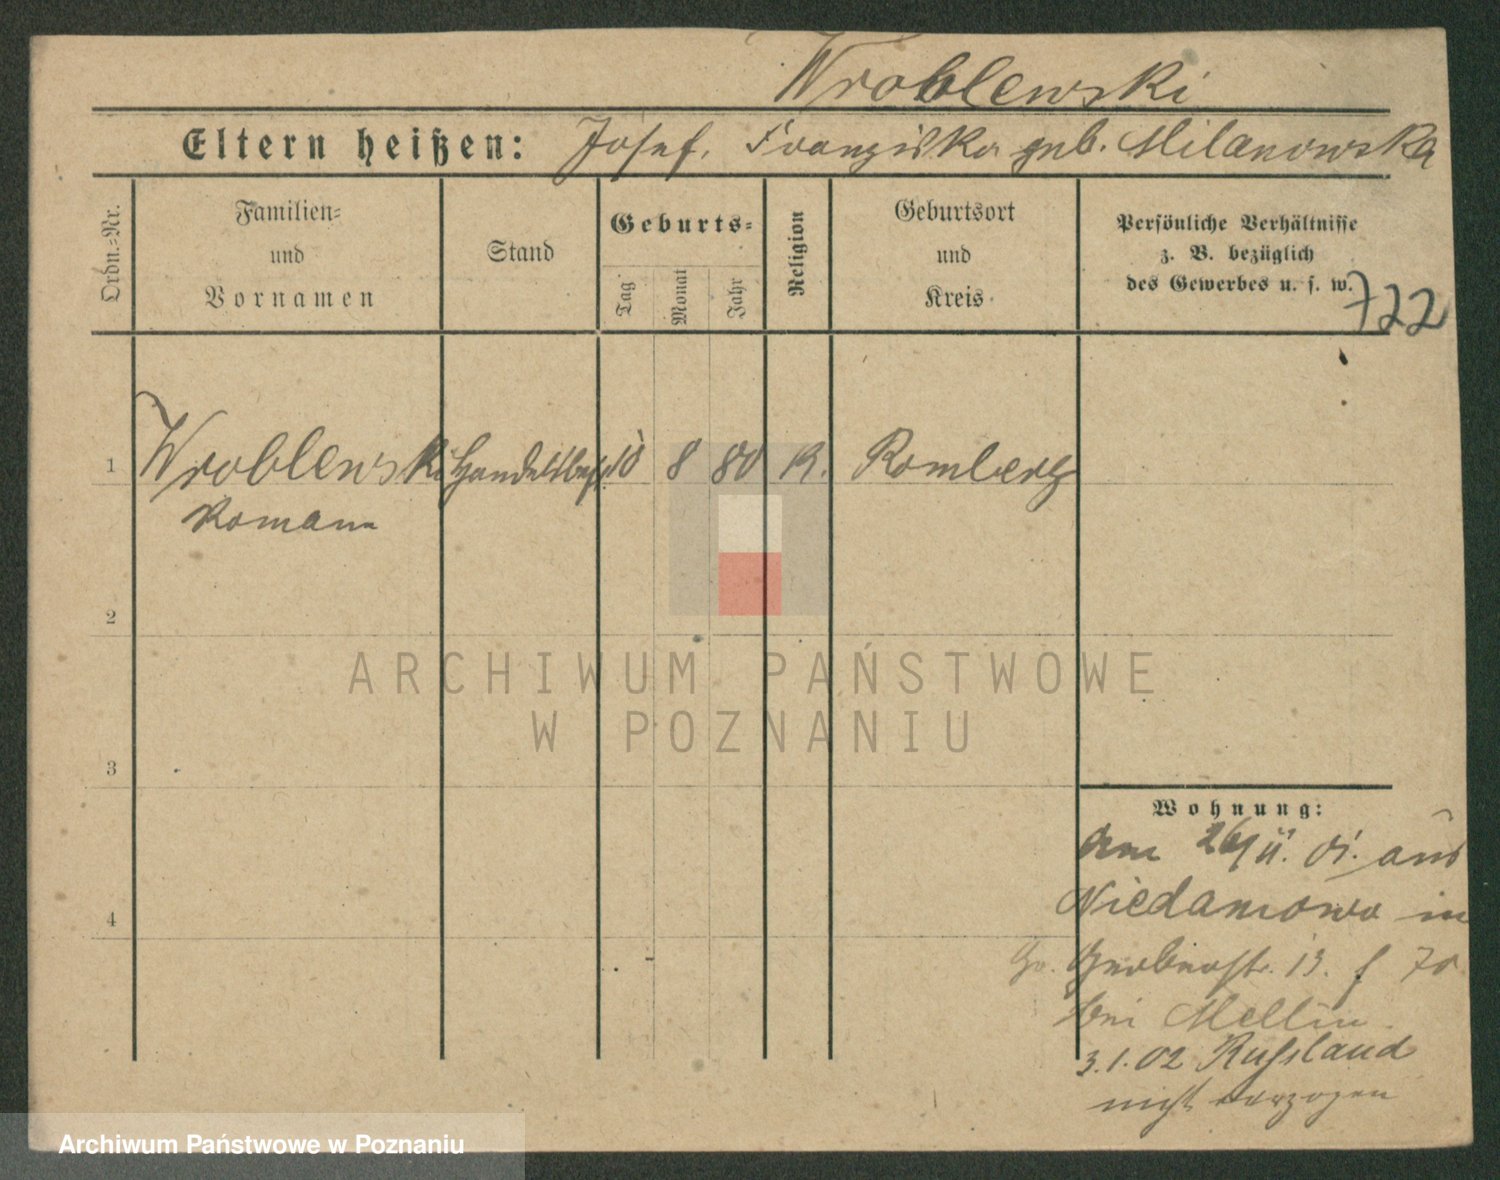 Wroblewski
Eltern heißen: Josef, Franziska geb. Milanowska
Ordn.=Nr.
Familien=
und
Vornamen
Stand
Geburts=
Tag
Monat
Jahr
Religion
Geburtsort
und
Kreis
Persönliche Verhältnisse
z. B. bezüglich
des Gewerbes u. s. w.
722
1 Wroblewski 8 80 Romberg
Roman
2
ARCHIWUM PAŃSTWOWE
W POZNANIU
3
Wohnung:
Am 26/11. 01. aus
4 Niedamowo in
13. 70
bei Mellin
3.1.02 Russland
nicht verzogen
Archiwum Państwowe w Poznaniu